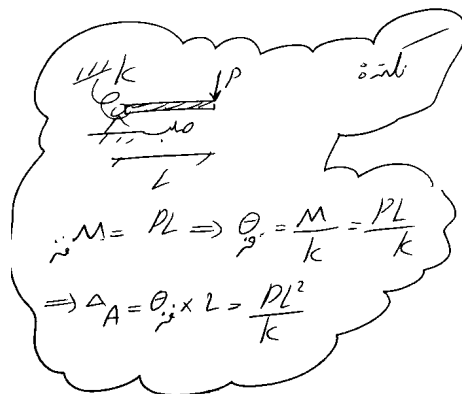 نکته
K
P
صلب
L
M فنر = PL ⇒ θ فنر = M/K = PL/K
⇒ Δ_A = θ فنر × L = PL²/K